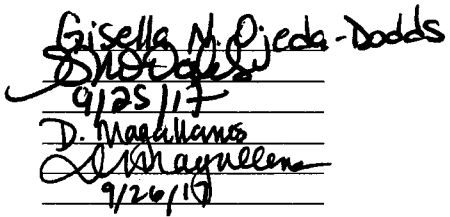 Gisella N. Ojeda-Dodds
9/25/17
D. Magallanes
9/26/17